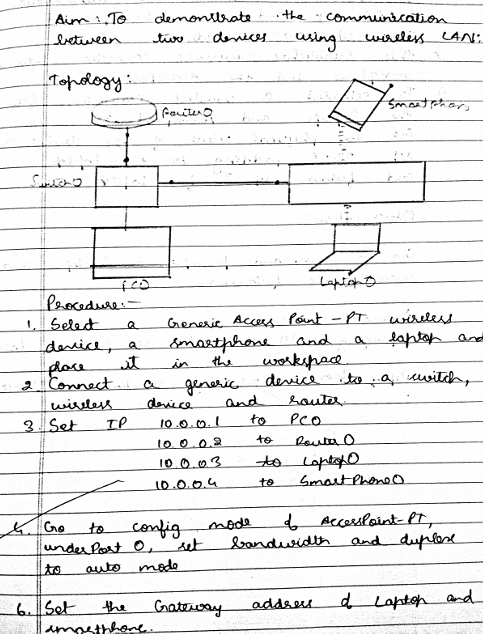 Aim: To demonstrate the communication
between two devices using wireless LAN:
Topology:
Router0
Smartphone
Switch0
PC0
Laptop0
Procedure:-
1. Select a Generic Access Point - PT wireless
device, a smartphone and a laptop and
place it in the workspace
2. Connect a generic device to a switch,
wireless device and router
3. Set IP 10.0.0.1 to PC0
10.0.0.2 to Router0
10.0.0.3 to Laptop0
10.0.0.4 to SmartPhone0
4. Go to config mode of AccessPoint-PT,
under Port 0, set bandwidth and duplex
to auto mode
6. Set the Gateway address of Laptop and
smartphone.